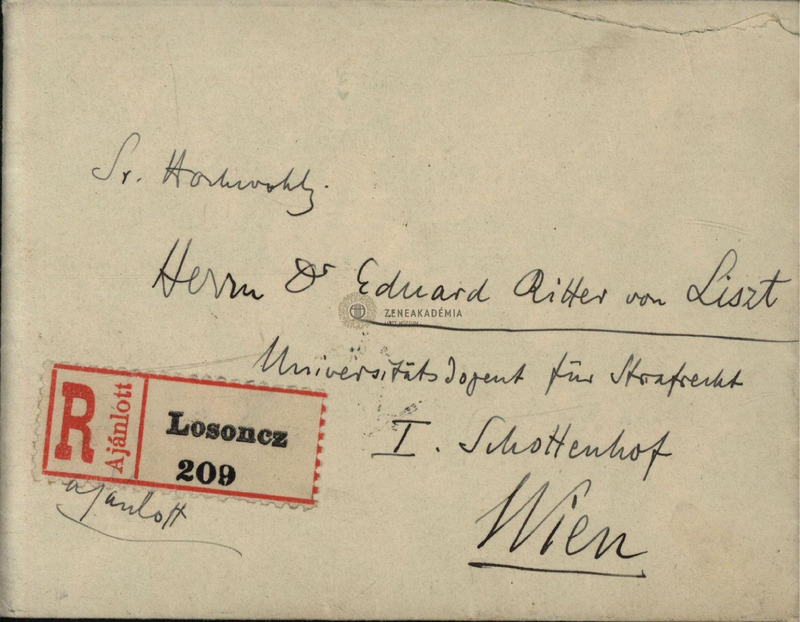 Sr. Hochwohlg.
Herrn Dr Eduard Ritter von Liszt
ZENEAKADÉMIA
LISZT MÚZEUM
Universitätsdozent für Strafrecht
I. Schottenhof
Wien
R
Ajánlott
Losoncz
209
ajánlott